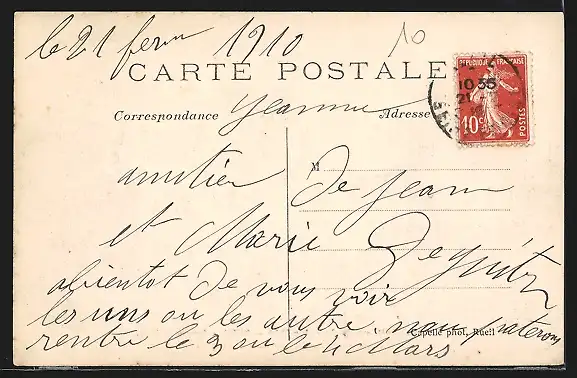 le 21 fevrier 1910
10
CARTE POSTALE
REPUBLIQUE FRANÇAISE
10 35
21
10c
POSTES
Correspondance Jeanne Adresse
M
amitier de Jean
et Marie
abientot de vous voir
les uns ou les autre, nous
Capelle phot, Rueil
rentre le 3 ou le 4 Mars